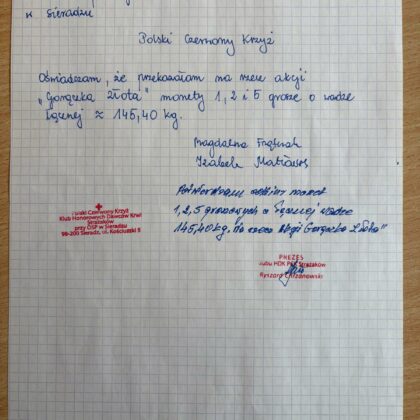 w Sieradzu
Polski Czerwony Krzyż
Oświadczam, że przekazałam na rzecz akcji
„Gorączka Złota" monety 1, 2 i 5 grosze o wadze
łącznej ≈ 145,40 kg.
Magdalena
Izabela
Potwierdzam odbiór monet
1,2,5 groszowych o łącznej wadze
145,40 kg. na rzecz Akcji Gorączka Złota"
Polski Czerwony Krzyż
Klub Honorowych Dawców Krwi
Strażaków
przy OSP w Sieradzu
98-200 Sieradz, ul. Kościuszki 5
PREZES
Klubu HDK PCK Strażaków
Ryszard Chrzanowski